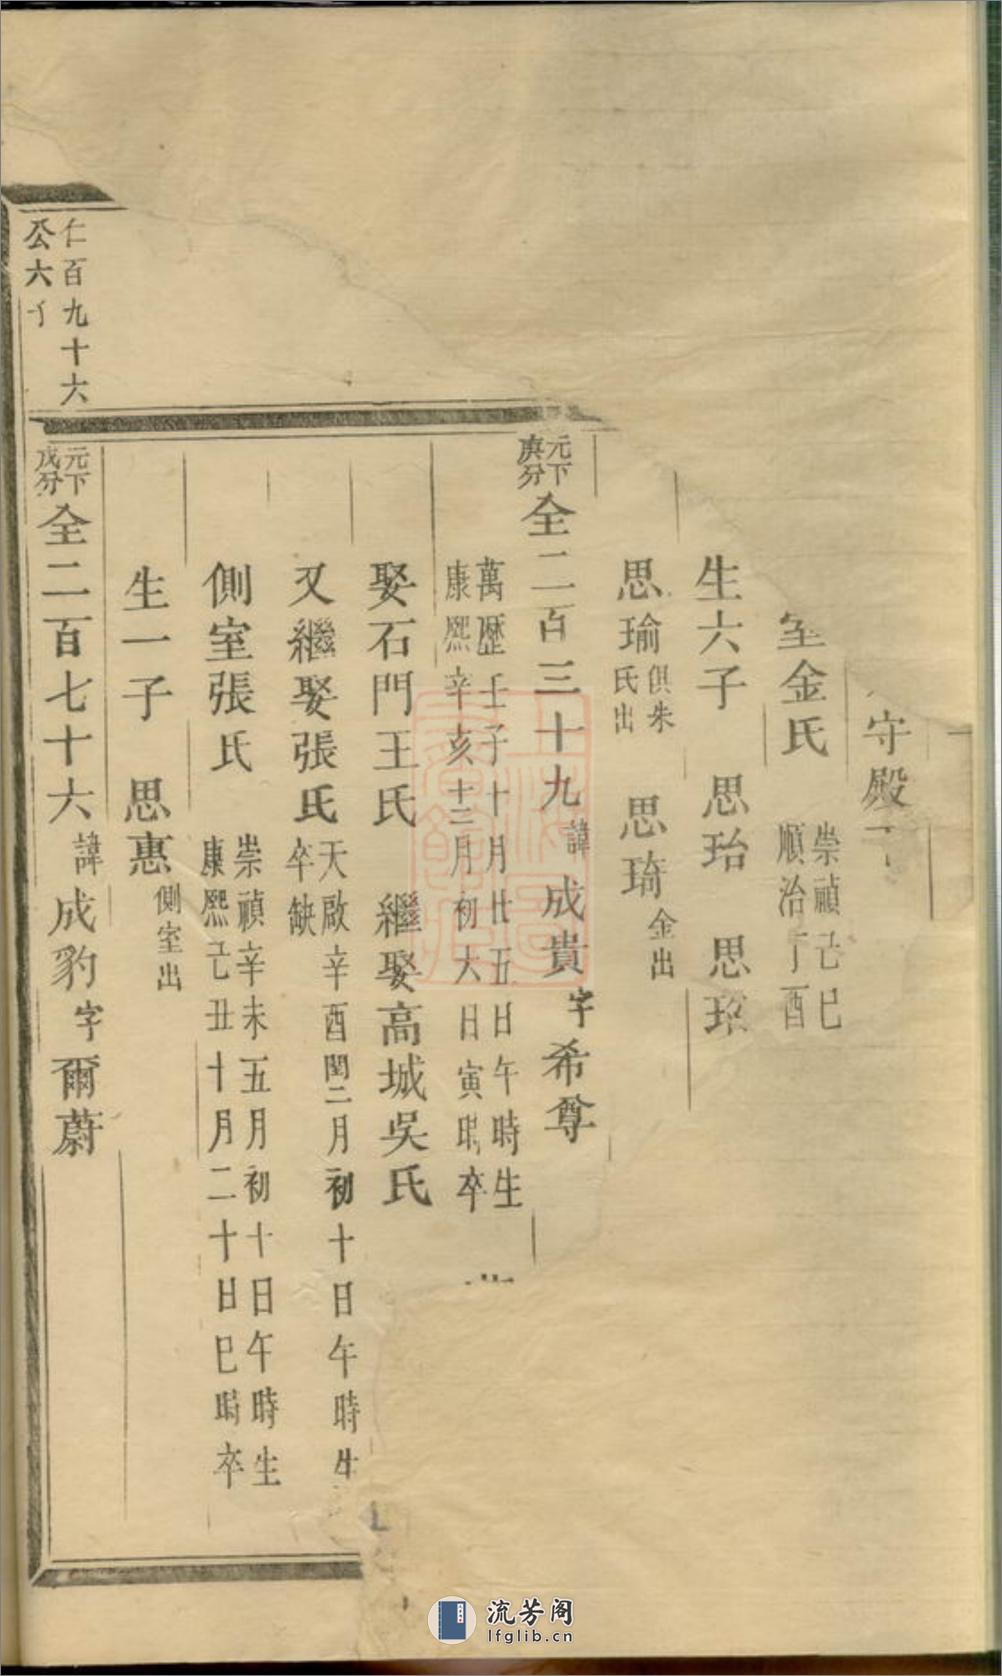 守殿
金氏
崇禎己巳
順治丁酉
生六子 思珆 思玿
思瑜 俱朱氏出 思琦 金出
元下庚分
全二百三十九 諱成貴 字希尊
萬歷壬子十月廿五日午時生
康熙辛亥十二月初六日寅時卒
娶石門王氏 繼娶高城吳氏
又繼娶張氏 天啟辛酉閏二月初十日午時生
卒缺
側室張氏 崇禎辛未五月初十日午時生
康熙己丑十月二十日巳時卒
生一子 思惠 側室出
仁百九十六
公六
元下戊分
全二百七十六 諱成豹 字爾蔚
流芳阁
lfglib.cn